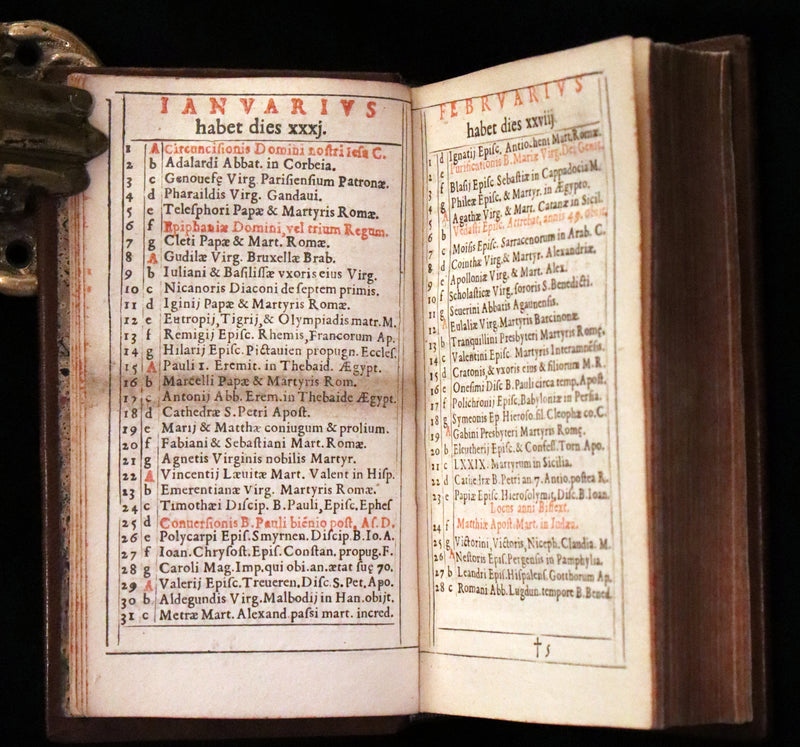 IANVARIVS
habet dies xxxj.
1 A Circuncisionis Domini nostri Iesu C.
2 b Adalardi Abbat. in Corbeia.
3 c Genouefę Virg Parisiensium Patronæ.
4 d Pharaildis Virg. Gandaui.
5 e Telesphori Papæ & Martyris Romæ.
6 f Epiphaniæ Domini, vel trium Regum.
7 g Cleti Papæ & Mart. Romæ.
8 A Gudilæ Virg. Bruxellæ Brab.
9 b Iuliani & Basilissæ vxoris eius Virg.
10 c Nicanoris Diaconi de septem primis.
11 d Iginij Papæ & Martyris Romæ.
12 e Eutropij, Tigrij, & Olympiadis matr. M.
13 f Remigij Episc. Rhemis, Francorum Ap.
14 g Hilarij Episc. Pictauien propugn. Eccles.
15 A Pauli 1. Eremit. in Thebaid. Ægypt.
16 b Marcelli Papæ & Martyris Rom.
17 c Antonij Abb. Erem. in Thebaide Ægypt.
18 d Cathedræ S. Petri Apost.
19 e Marij & Matthæ coniugum & prolium.
20 f Fabiani & Sebastiani Mart. Romæ.
21 g Agnetis Virginis nobilis Martyr.
22 A Vincentij Læuitæ Mart. Valent in Hisp.
23 b Emerentianæ Virg. Martyris Romæ.
24 c Timothæi Discip. B. Pauli, Episc. Ephes
25 d Conuersionis B. Pauli biēnio post, As. D.
26 e Polycarpi Epis. Smyrnen. Discip. B. Io. A.
27 f Ioan. Chrysost. Epis. Constan. propug. F.
28 g Caroli Mag. Imp. qui obi. an. ætat suę 70.
29 A Valerij Episc. Treueren. Disc. S. Pet. Apo.
30 b Aldegundis Virg. Malbodij in Han. obijt.
31 c Metræ Mart. Alexand. passi mart. incred.
FEBRVARIVS
habet dies xxviij.
1 d Ignatij Episc. Antio. hent Mart. Romæ.
2 e Purificationis B. Mariæ Virg. Dei Genit.
3 f Blasij Episc Sebastiæ in Cappadocia M.
4 g Phileæ Episc. & Martyr. in Ægypto.
5 A Agathæ Virg. & Mart. Catanæ in Sicil.
6 b Vedasti Episc. Attrebat. annis 40.
7 c Moisis Episc. Sarracenorum in Arab. C.
8 d Cointhæ Virg. & Martyr. Alexandriæ.
9 e Apolloniæ Virg. & Mart. Alex.
10 f Scholasticæ Virg. sororis S. Benedicti.
11 g Seuerini Abbatis Agaunensis.
12 A Eulaliæ Virg. Martyris Barcinonæ.
13 b Tranquillini Presbyteri Martyris Romę.
14 c Valentini Episc. Martyris Interamnēsis.
15 d Cratonis, & vxoris eius & filiorum M. R.
16 e Onesimi Disc B. Pauli circa temp. Apost.
17 f Polichronij Episc. Babyloniæ in Persia.
18 g Symeonis Ep Hieroso. fil. Cleophæ co. C.
19 A Gabini Presbyteri Martyris Romę.
20 b Eleutherij Episc. & Confess. Torn Apo.
21 c LXXIX. Martyrum in Sicilia.
22 d Cathedræ B. Petri an. 7. Antio. postea R.
23 e Papiæ Episc Hierosolymit, Disc. B. Ioan.
Locus anni Bissext.
24 f Matthiæ Apost. Mart. in Iudæa.
25 g Victorini, Victoris, Niceph. Claudia. M.
26 A Nestoris Epis. Pergensis in Pamphylia.
27 b Leandri Epis. Hispalens. Gotthorum Ap.
28 c Romani Abb. Lugdun. tempore B. Bened.
† 5